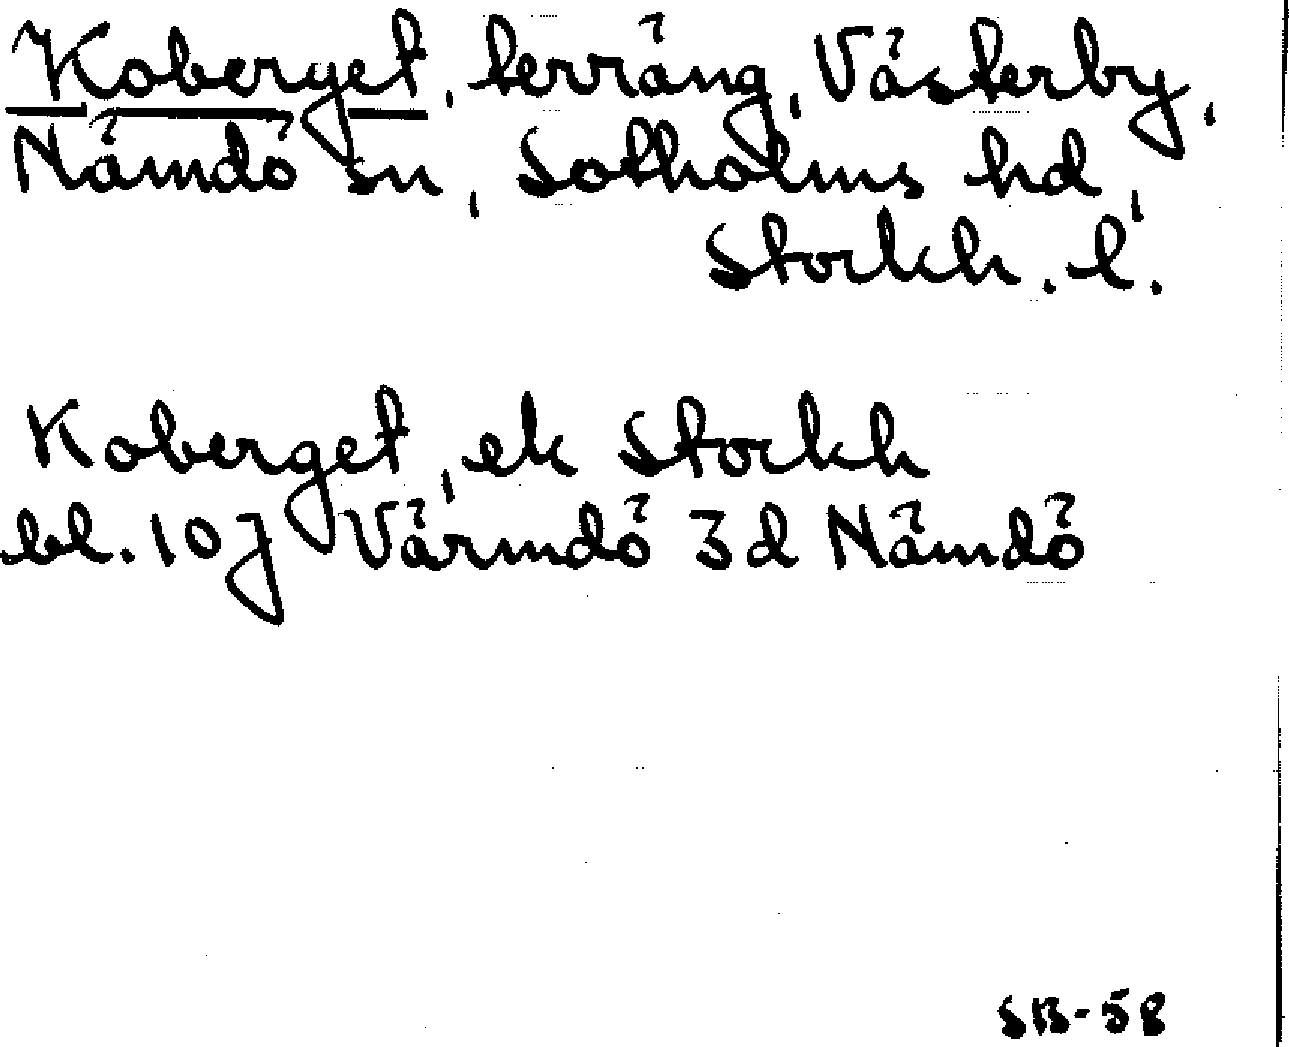 Koberget, terräng, Västerby,
Nämdö sn, Sotholms hd,
Stockh. l.
Koberget, ek Stockh
bl. 107 Värmdö 3d Nämdö
SB-58